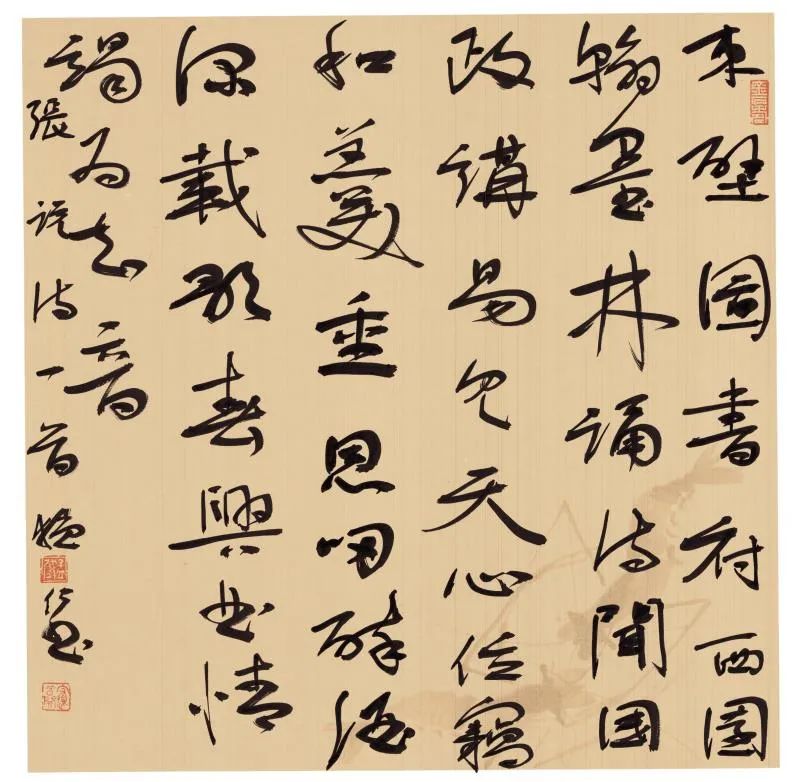 東壁圖書府西園
翰墨林誦詩聞國
政講易見天心位竊
和羹重恩叨醉酒
深載歌春興曲情
竭為知音
張說詩一首